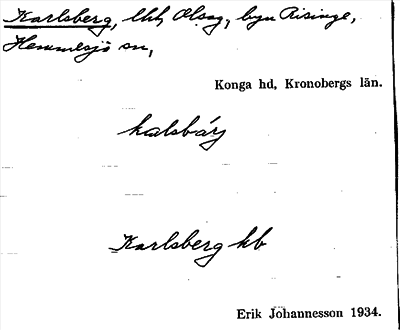 Karlsberg, lht, Olsag, byn Risinge,
Hemmesjö sn,
Konga hd, Kronobergs län.
kalsbárj
Karlsberg kb
Erik Johannesson 1934.